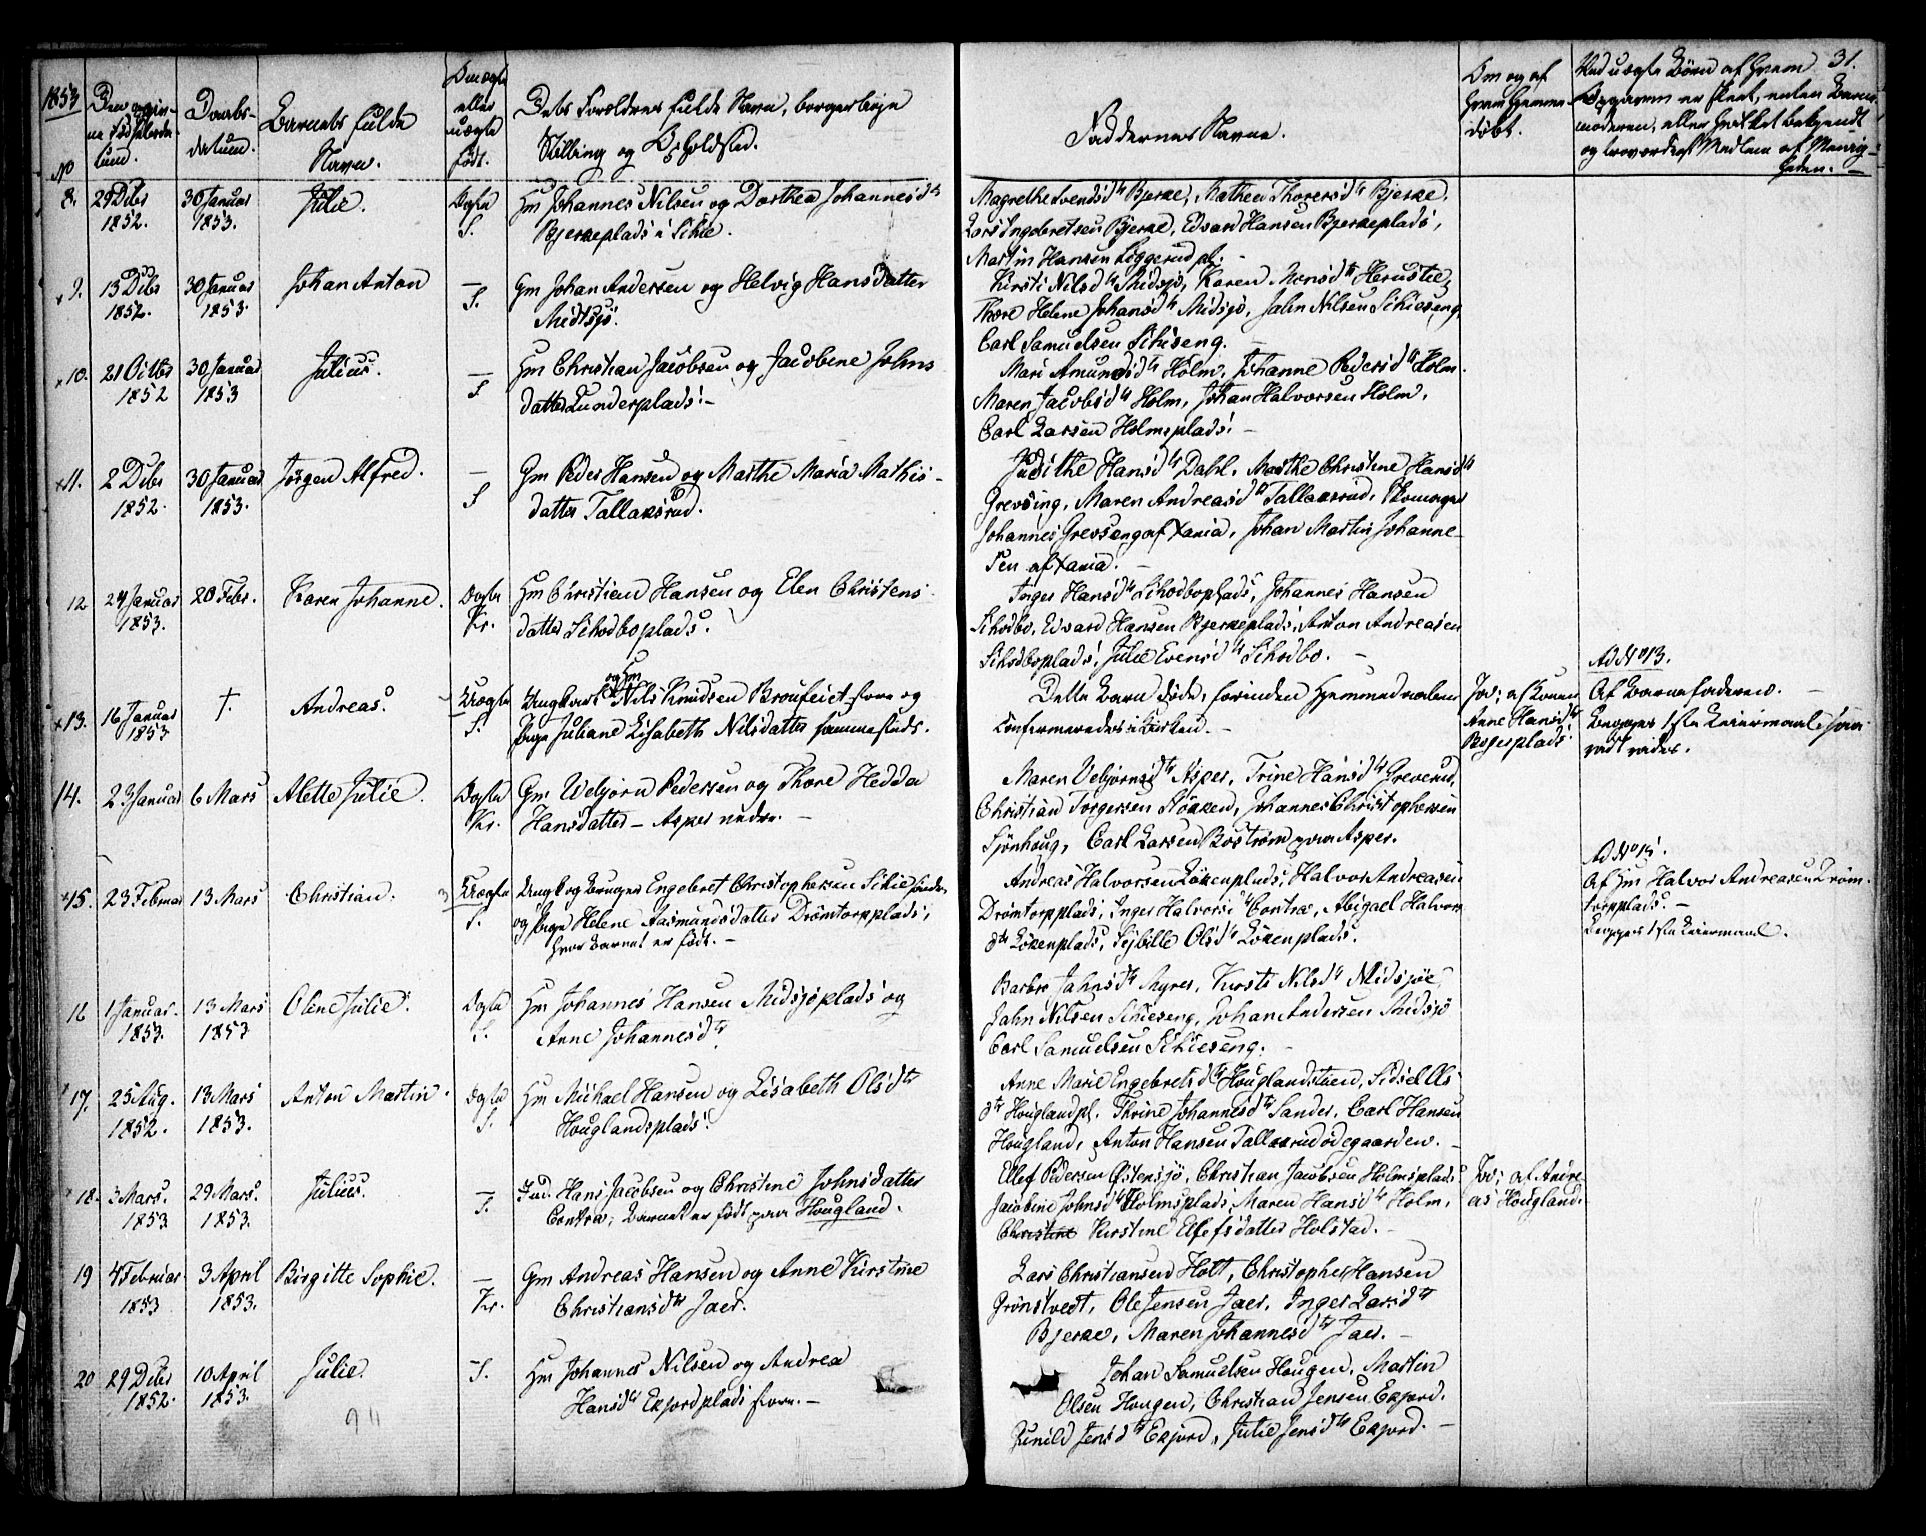 1853
No
Den og gin-
ne Fødselsda-
tum.
Daabs-
datum.
Barnets fulde
Navn.
Om ægte
eller
uægte
født.
Dets Forældres fulde Navn, borgerlige
Stilling og Opholdsted.
Faddernes Navne.
Om og af
hvem hjemme
døbt.
31.
Ved uægte Børn af hvem
Opgaven er skeet, enten Barne-
moderen, eller hvilket bekjendt
og troværdigt Medlem af Menig-
heden. —
8. 29 Dcbr 30 Januar Julie. Ægte Hm Johannes Nilsen og Dorthea Johannesdtr
1852. 1853. S. Bjerkeplads i Schie.
Magrethe Svendsdtr Bjerke, Mathea Thorersdtr Bjerke.
Lars Ingebretsen Bjerke, Edvard Hansen Bjerkeplads,
Martin Hansen Liggerud pl. -
x 9. 13 Dcbr 30 Januar Johan Anton — Gm Johan Andersen og Helvig Hansdatter
1852. 1853. S. Midtsjø.
Kirsti Nilsdtr Midsjø, Karen Monsdtr
Thore Helene Johansdtr Midsjø, Jahn Nilsen Schieseng,
Carl Samuelsen Schiseng. —
x 10. 21 Octbr 30 Januar Julius. — Hm Christian Jacobsen og Jacobine Johns
1852 1853 S datter Lunderplads. —
Mari Amundsdtr Holm, Johanne Pedersdtr Holm.
Maren Jacobsdtr Holm, Johan Halvorsen Holm,
Carl Larsen Holmsplads. —
x 11. 2 Dcbr 30 Januar Jørgen Alfred. — Gm Peder Hansen og Marthe Maria Mathis-
1852. 1853. S datter Tallaksrud.
Judithe Hansdtr Dahl, Marthe Christine Hansdtr
Grevsing, Maren Andreasdtr Tallaksrud,
Johannes Grevseng af Xania, Johan Martin Johanne-
sen af Xania. —
12 24 Januar 20 Febr. Karen Johanne. Ægte Hm Christian Hansen og Elen Christens
1853. Kr. datter Schodboplads.
Inger Hansdtr Schodboplads, Johannes Hansen
Schodbo, Edvard Hansen Bjerkeplads, Anton Andreasen
Schodboplads, Julie Evensdtr Schodbo. —
x 13. 16 Januar † Andreas. Uægte Ungkarl og Gm Nils Knudsen Broufeiet fore og
1853 S. Pige Juliane Lisabeth Nilsdatter sammesteds.
Dette Barn døde, forinden Hjemmedaaben
confirmeredes i Kirken. —
Jov; af Konen
Anne Hansdtr
Bøgesplads.
Ad No 13.
Af Barnefaderen. —
Begges 1ste Leiermaal
14. 23 Januar 6 Mars Alette Julie. Ægte Gm Uebjørn Pedersen og Thore Hedda
Kr. Hansdatter — Asper nedre. —
Maren Uebjørnsdtr Asper, Trine Hansdtr Greverud,
Christian Torgersen Støkken, Johannes Christophersen
Sjønhoug, Carl Larsen Boström paa Asper.
x 15. 23 Februar 13 Mars Christian. Uægte Ungk og Bruger Engebret Christophersen Schie søndre
S. og Pige Helene Aasmundsdatter Drømtorpplads,
hvor Barnet er født. —
Andreas Halvorsen Løkenplads, Halvor Andreasen
Drømtorpplads, Inger Halvorsdtr Contra, Abigael Halvors
dtr Løkenplads, Sybille Olsdtr Løkenplads.
Ad No 15.
Af Hm Halvor Andreasen Drøm-
torpplads. —
Begges 1ste Leiermaal.
16 1 Januar. 13 Mars Oline Julie. Ægte Hm Johannes Hansen Midsjøplads og
1853. 1853 S. Anne Johannesdtr
Barbro Jahnsdtr Myrer, Kirsti Nilsdtr Midsjøe,
Jahn Nilsen Schieseng, Johan Andersen Midsjø
Carl Samuelsen Schieseng. —
17. 25 Aug. 13 Mars Anton Martin. Ægte Hm Michael Hansen og Lisabeth Olsdtr
1852. 1853. S. Houglandsplads.
Anne Marie Engebretsdtr Houglandstuen, Sidsel Ols
dtr Houglandpl. Thrine Johannesdtr Sander, Carl Hansen
Hougland, Anton Hansen Tallaksrudødegaarden. —
18. 3 Mars. 29 Mars. Julius. — Ind. Hans Jacobsen og Christine Johnsdatter
1853 1853. S. Contra; Barnet er født paa Hougland.
Ellef Pedersen Østensjø, Christian Jacobsen Holmsplads.
Jacobine Johnsdtr Holmsplads, Maren Hansdtr Holm,
Christine Kirstine Elefsdatter Holstad. —
Jov; af Andre-
as Hougland.
19 4 Februar 3 April Birgitte Sophie. — Gm Andreas Hansen og Anne Kirstine
1853 1853. Kr. Christiansdtr Jaer.
Lars Christiansen Holt, Christopher Hansen
Grønstvedt, Ole Jensen Jaer, Inger Larsdtr
Bjerke, Maren Johannesdtr Jaer. —
20 29 Dcbr 10 April Julie. — S. Hm Johannes Nilsen og Andrea
1852. 1853. Hansdtr Ekjordplads fore. —
Johan Samuelsen Hougen, Martin
Olsen Hougen, Christian Jensen Ekjord.
Gunild Jensdtr Ekjord, Julie Jensdtr Ekjord. —